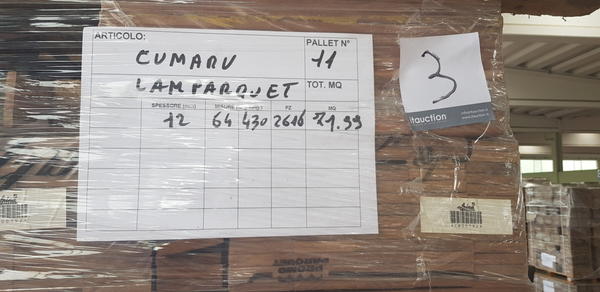 ARTICOLO:
PALLET N°
CUMARU
11
LAMPARQUET
TOT. MQ
SPESSORE (mm) MISURE PZ MQ
12 64 430 2616 71.99
3
itauction